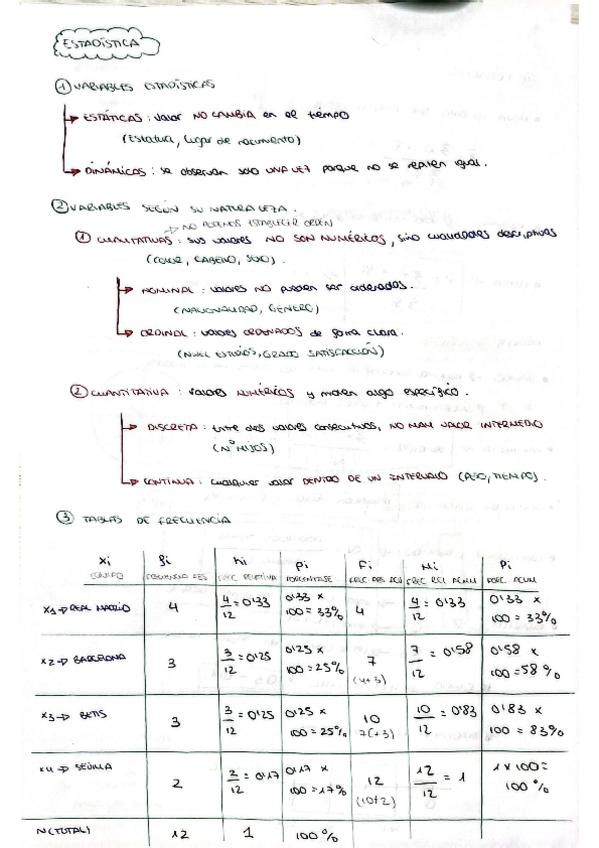 ESTADÍSTICA
① VARIABLES ESTADÍSTICAS
ESTÁTICAS: valor NO CAMBIA en el tiempo
(Estatura, lugar de nacimiento)
DINÁMICAS: se observan solo UNA VEZ porque no se repiten igual.
② VARIABLES SEGÚN SU NATURALEZA.
→ NO PODEMOS ESTABLECER ORDEN
① CUALITATIVAS: sus valores NO SON NUMÉRICOS, sino cualidades descriptivas
(COLOR, CABELLO, SEXO).
NOMINAL: valores NO pueden ser ordenados.
(NACIONALIDAD, GÉNERO)
ORDINAL: valores ORDENADOS de forma clara.
(NIVEL ESTUDIOS, GRADO SATISFACCIÓN)
② CUANTITATIVA: valores NUMÉRICOS y miden algo específico.
DISCRETA: Entre dos valores consecutivos, NO HAY VALOR INTERMEDIO
(Nº HIJOS)
CONTINUA: cualquier valor DENTRO DE UN INTERVALO (PESO, TIEMPO).
③ TABLAS DE FRECUENCIA
xi fi hi pi Fi Hi Pi
EQUIPO FRECUENCIA ABS FREC RELATIVA PORCENTAJE FREC ABS ACU FREC REL ACUM PORC. ACUM
x1 → REAL MADRID 4 4/12 = 0'33 0'33 x 100 = 33% 4 4/12 = 0'33 0'33 x 100 = 33%
x2 → BARCELONA 3 3/12 = 0'25 0'25 x 100 = 25% 7 (4+3) 7/12 = 0'58 0'58 x 100 = 58%
x3 → BETIS 3 3/12 = 0'25 0'25 x 100 = 25% 10 7(+3) 10/12 = 0'83 0'83 x 100 = 83%
x4 → SEVILLA 2 2/12 = 0'17 0'17 x 100 = 17% 12 (10+2) 12/12 = 1 1 x 100 = 100%
N (TOTAL) 12 1 100%